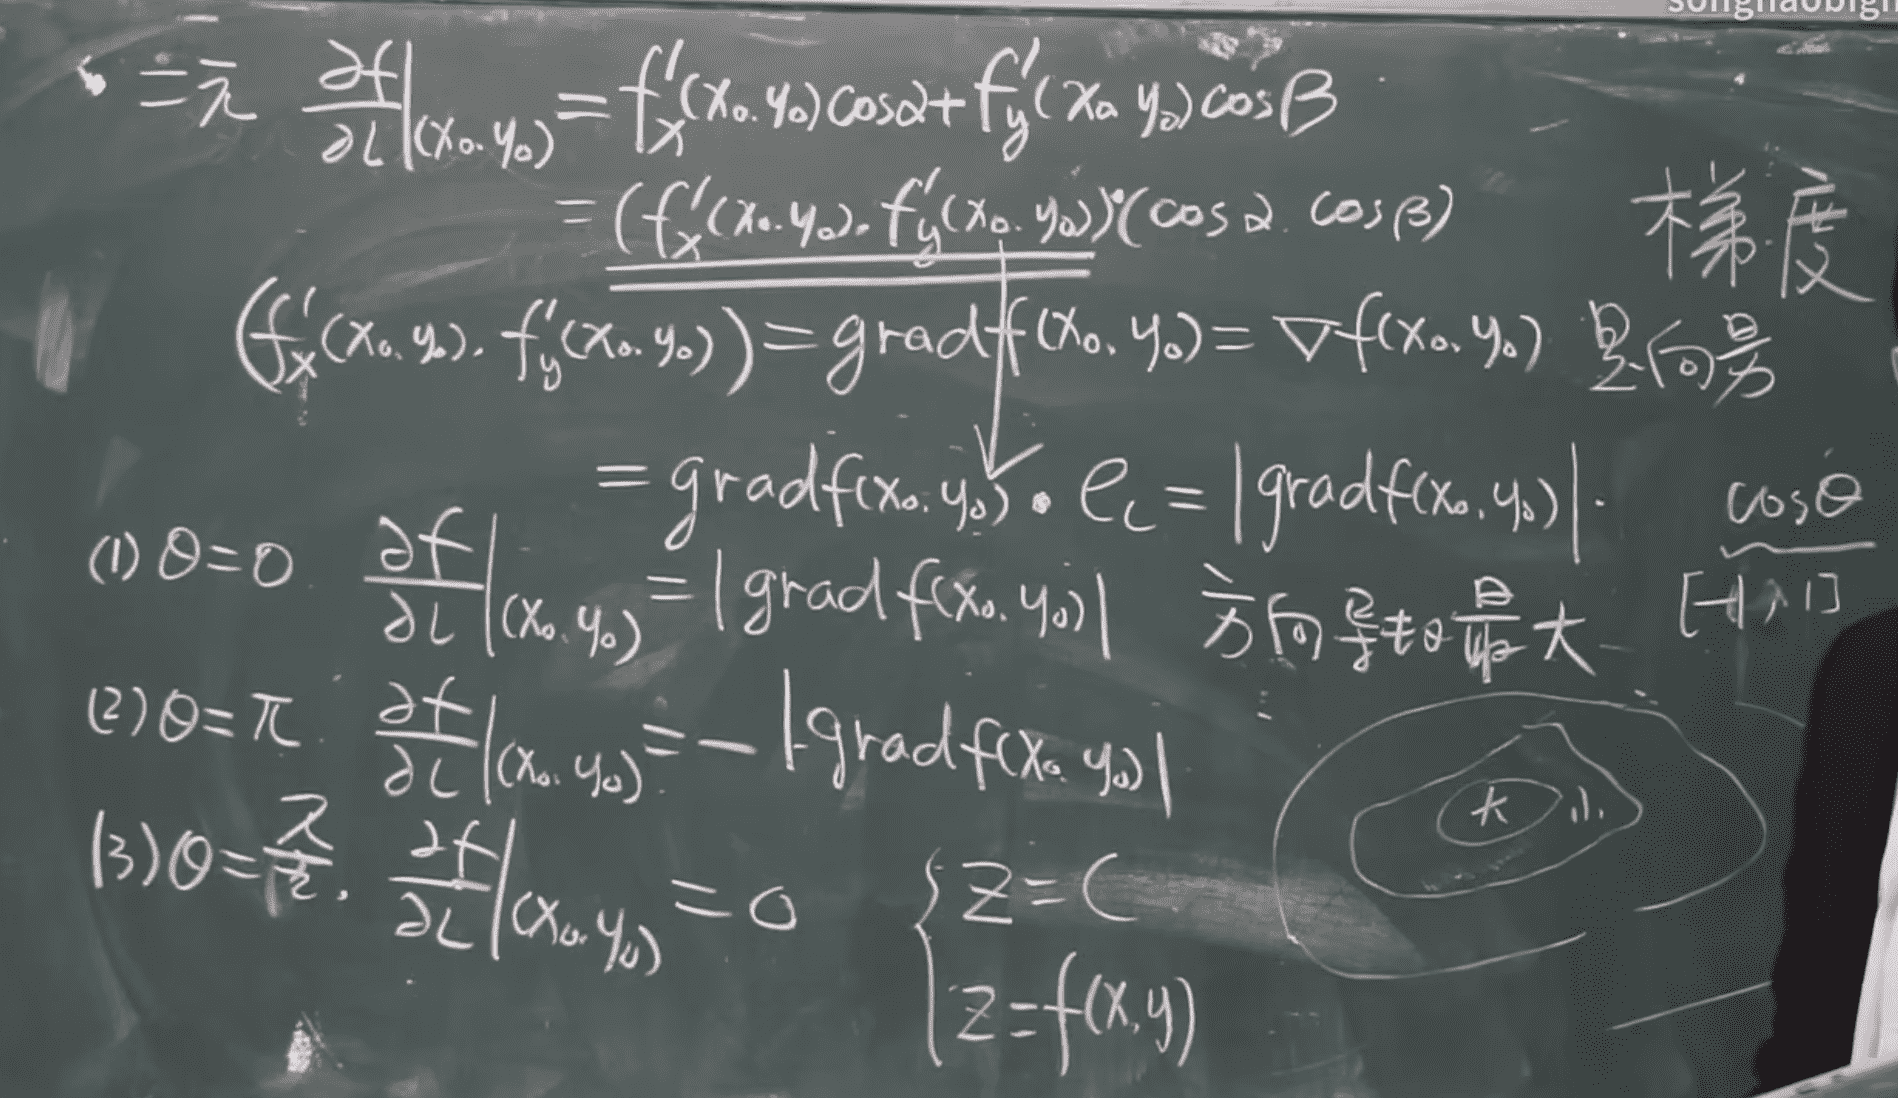 songhaobign
二元 ∂f/∂l|(x₀.y₀) = f'x(x₀.y₀)cosα+f'y(x₀ y₀)cosβ
= (f'x(x₀.y₀), f'y(x₀.y₀))·(cosα. cosβ)
梯度
(f'x(x₀.y₀), f'y(x₀.y₀)) = gradf(x₀.y₀) = ∇f(x₀.y₀) 是向量
= gradf(x₀.y₀) · eₗ = |gradf(x₀.y₀)|· cosθ
[-1,1]
(1) θ=0. ∂f/∂l|(x₀.y₀) = |gradf(x₀.y₀)| 方向导数最大
(2) θ=π. ∂f/∂l|(x₀.y₀) = -|gradf(x₀ y₀)|
(3) θ=π/2. ∂f/∂l|(x₀.y₀) = 0
大 小
{ z=C
z=f(x,y)